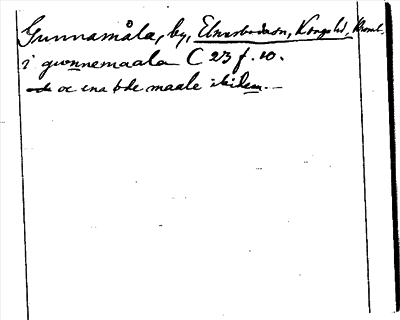 Gunnamåla, by, Elmeboda sn, Kongahd, Kronob.
i gwnnemaala C 23 f. 10.
oc ena þde maale ibidem.